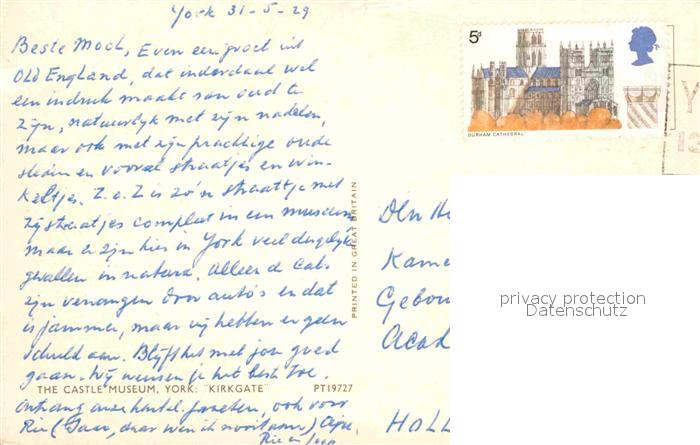 York 31-5-29
Beste Moch, Even een groet uit
Old England, dat inderdaad wel
een indruk maakt van oud te
zijn, natuurlijk met zijn nadelen,
maar ook met zijn prachtige oude
steden en vooral straatjes en win-
keltjes. Z.a.Z is zo'n straatje met
zijstraatjes compleet in een museum
maar er zijn hier in York veel dergelijke
gevallen in natura. Alleen de Cabs
zijn vervangen door auto's en dat
is jammer, maar wij hebben er geen
schuld aan. Blijft het met jou goed
gaan. Wij wensen je het beste toe.
THE CASTLE MUSEUM, YORK: "KIRKGATE" PT19727
Ontvang onze hartel. groeten, ook voor
Rie (Gaar, daar wen ik nooit aan)
Rie en
PRINTED IN GREAT BRITAIN
5d
DURHAM CATHEDRAL
Y
Den He
Kame
Gebou
Acad
HOLL
privacy protection
Datenschutz